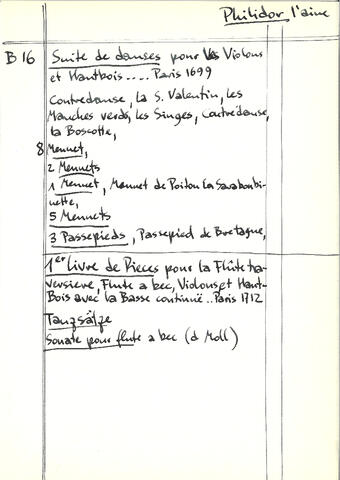 Philidor l'aine
B 16 Suite de danses pour les Violons
et Hautbois .... Paris 1699
Contredanse, la S. Valentin, les
Manches verds, les Singes, Contredanse,
la Boscotte,
8 Menuet,
2 Menuets
1 Menuet, Menuet de Poitou la
5 Menuets
3 Passepieds, Passepied de Bretagne,
1er Livre de Pieces pour la Flûte tra-
versiere, Flute a bec, Violons et Haut-
Bois avec la Basse continuë .. Paris 1712
Tanzsätze
Sonate pour flute a bec (d Moll)